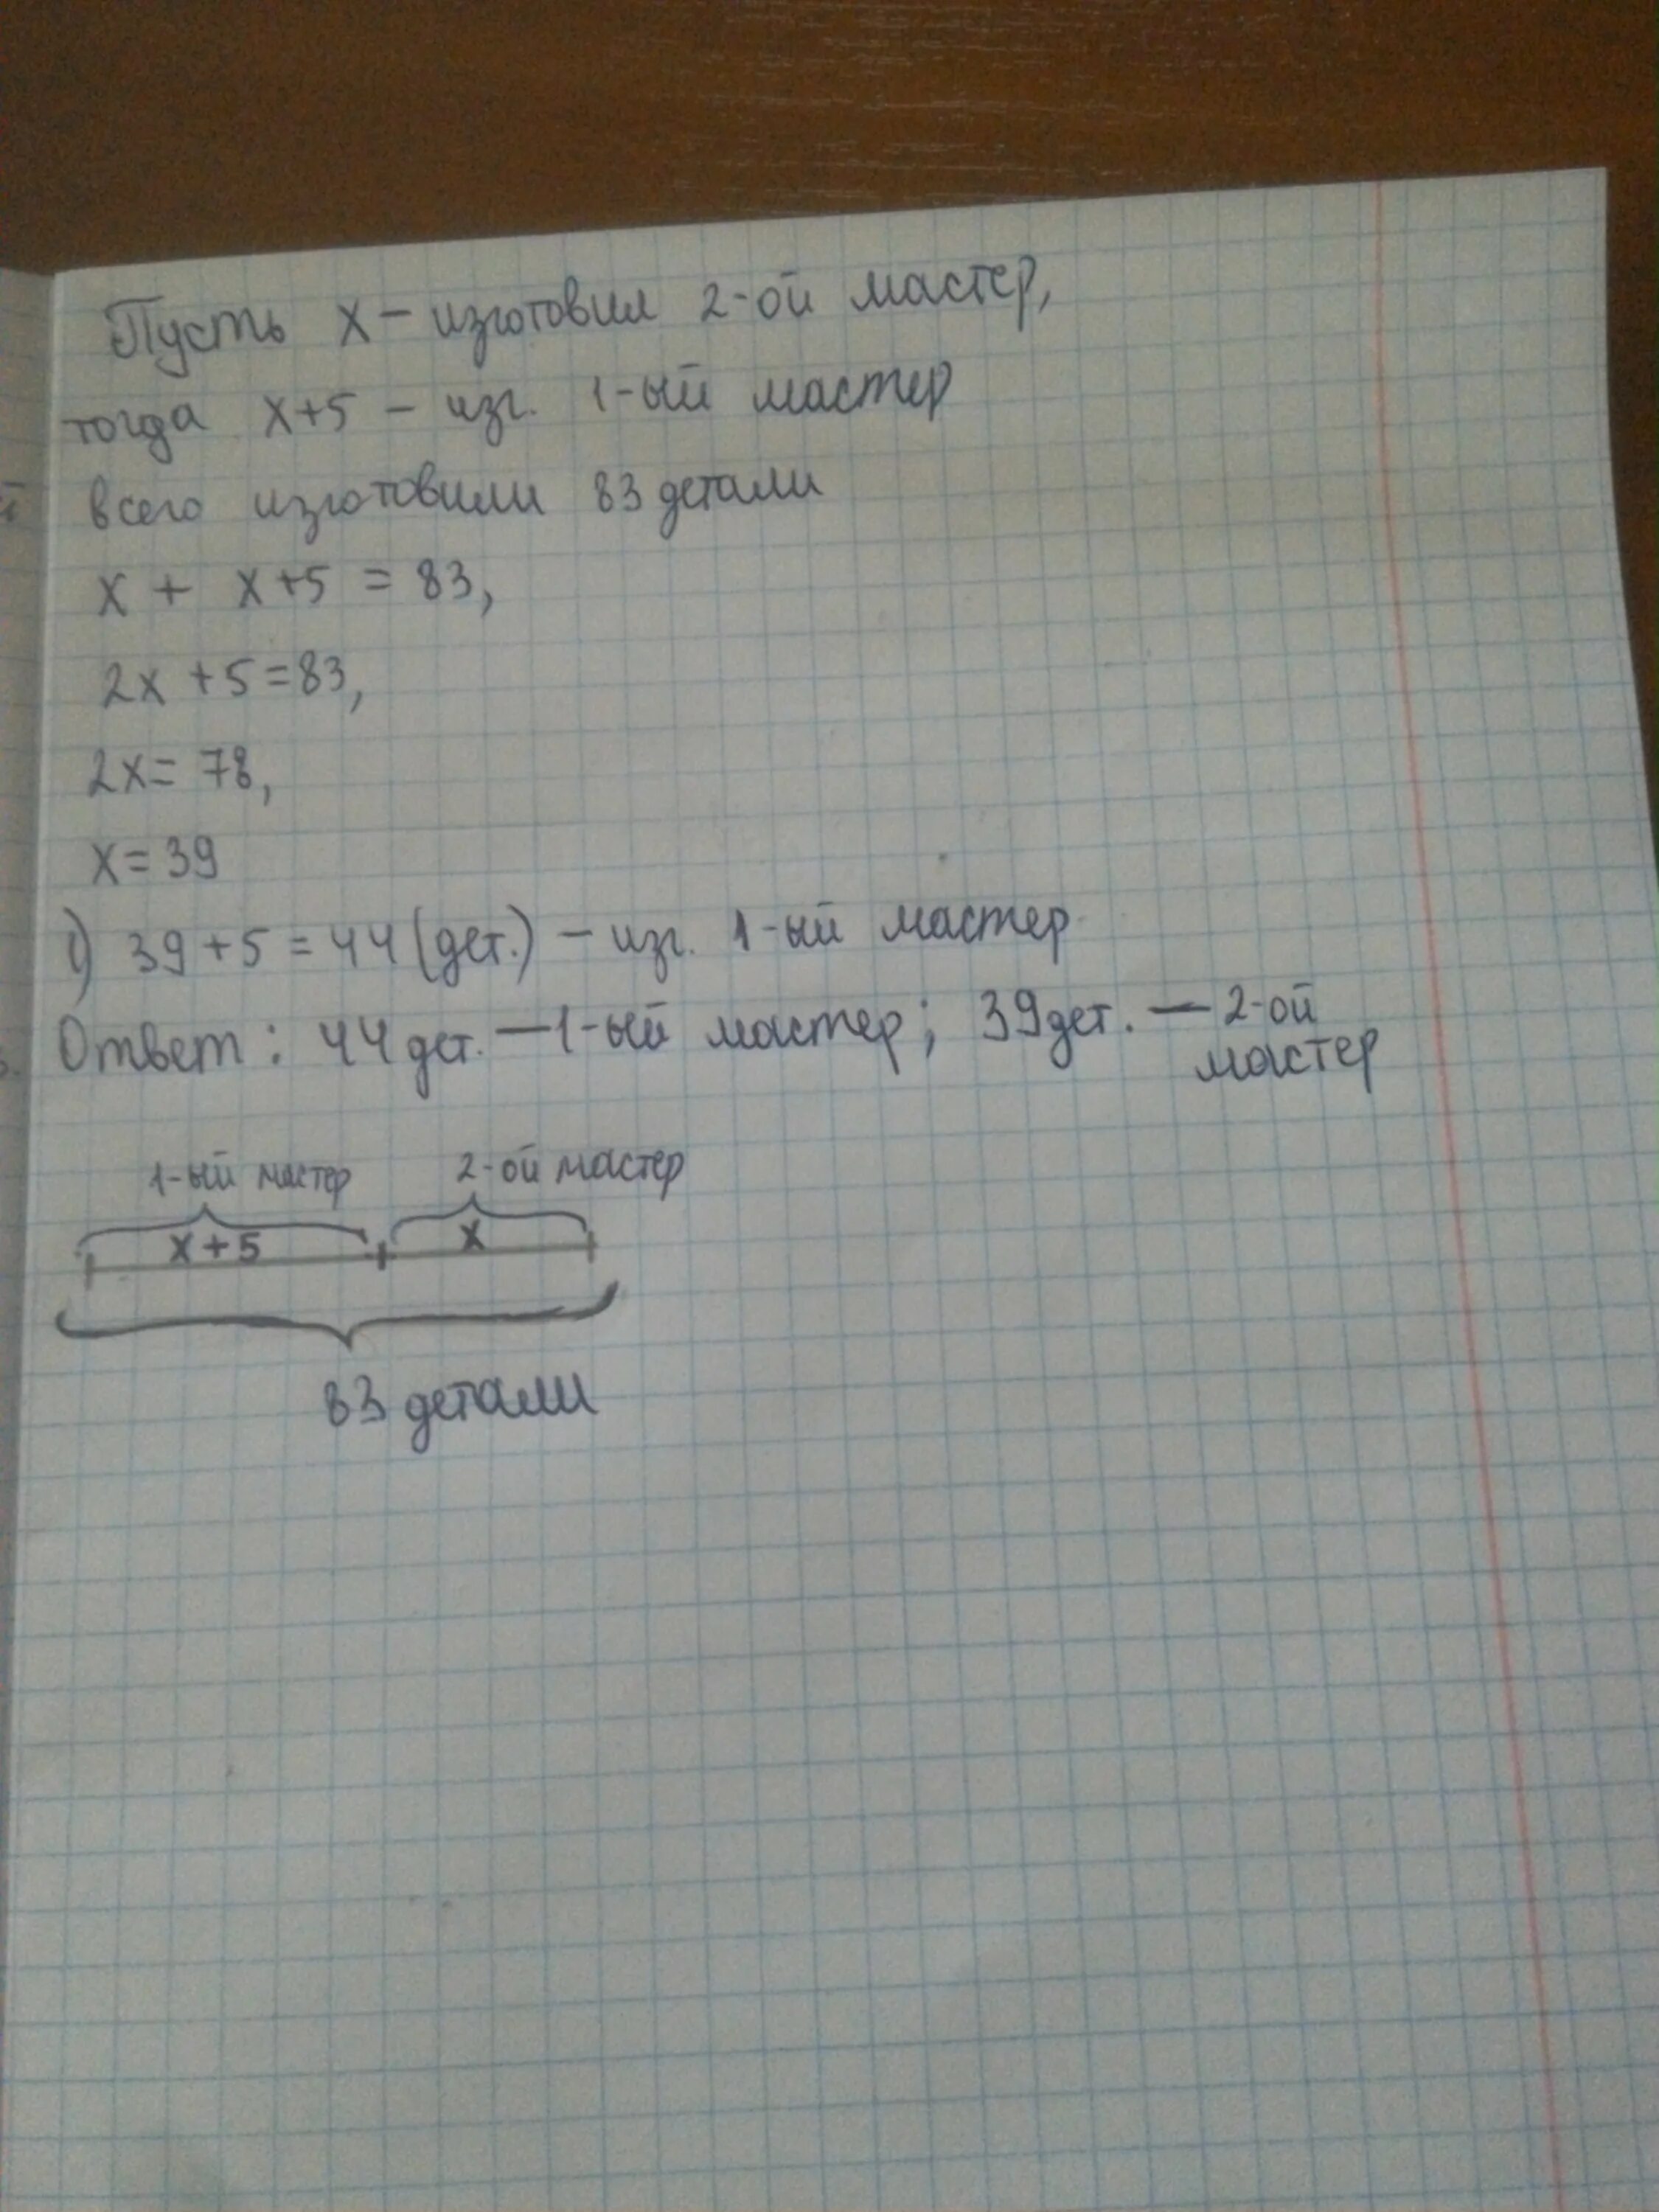 Пусть x – изготовил 2-ой мастер,
тогда x+5 – изг. 1-ый мастер
всего изготовили 83 детали
x + x+5 = 83,
2x +5=83,
2x= 78,
x=39
1) 39+5=44(дет.) – изг. 1-ый мастер
Ответ: 44дет. — 1-ый мастер; 39дет. — 2-ой
мастер
1-ый мастер 2-ой мастер
x+5 x
83 детали